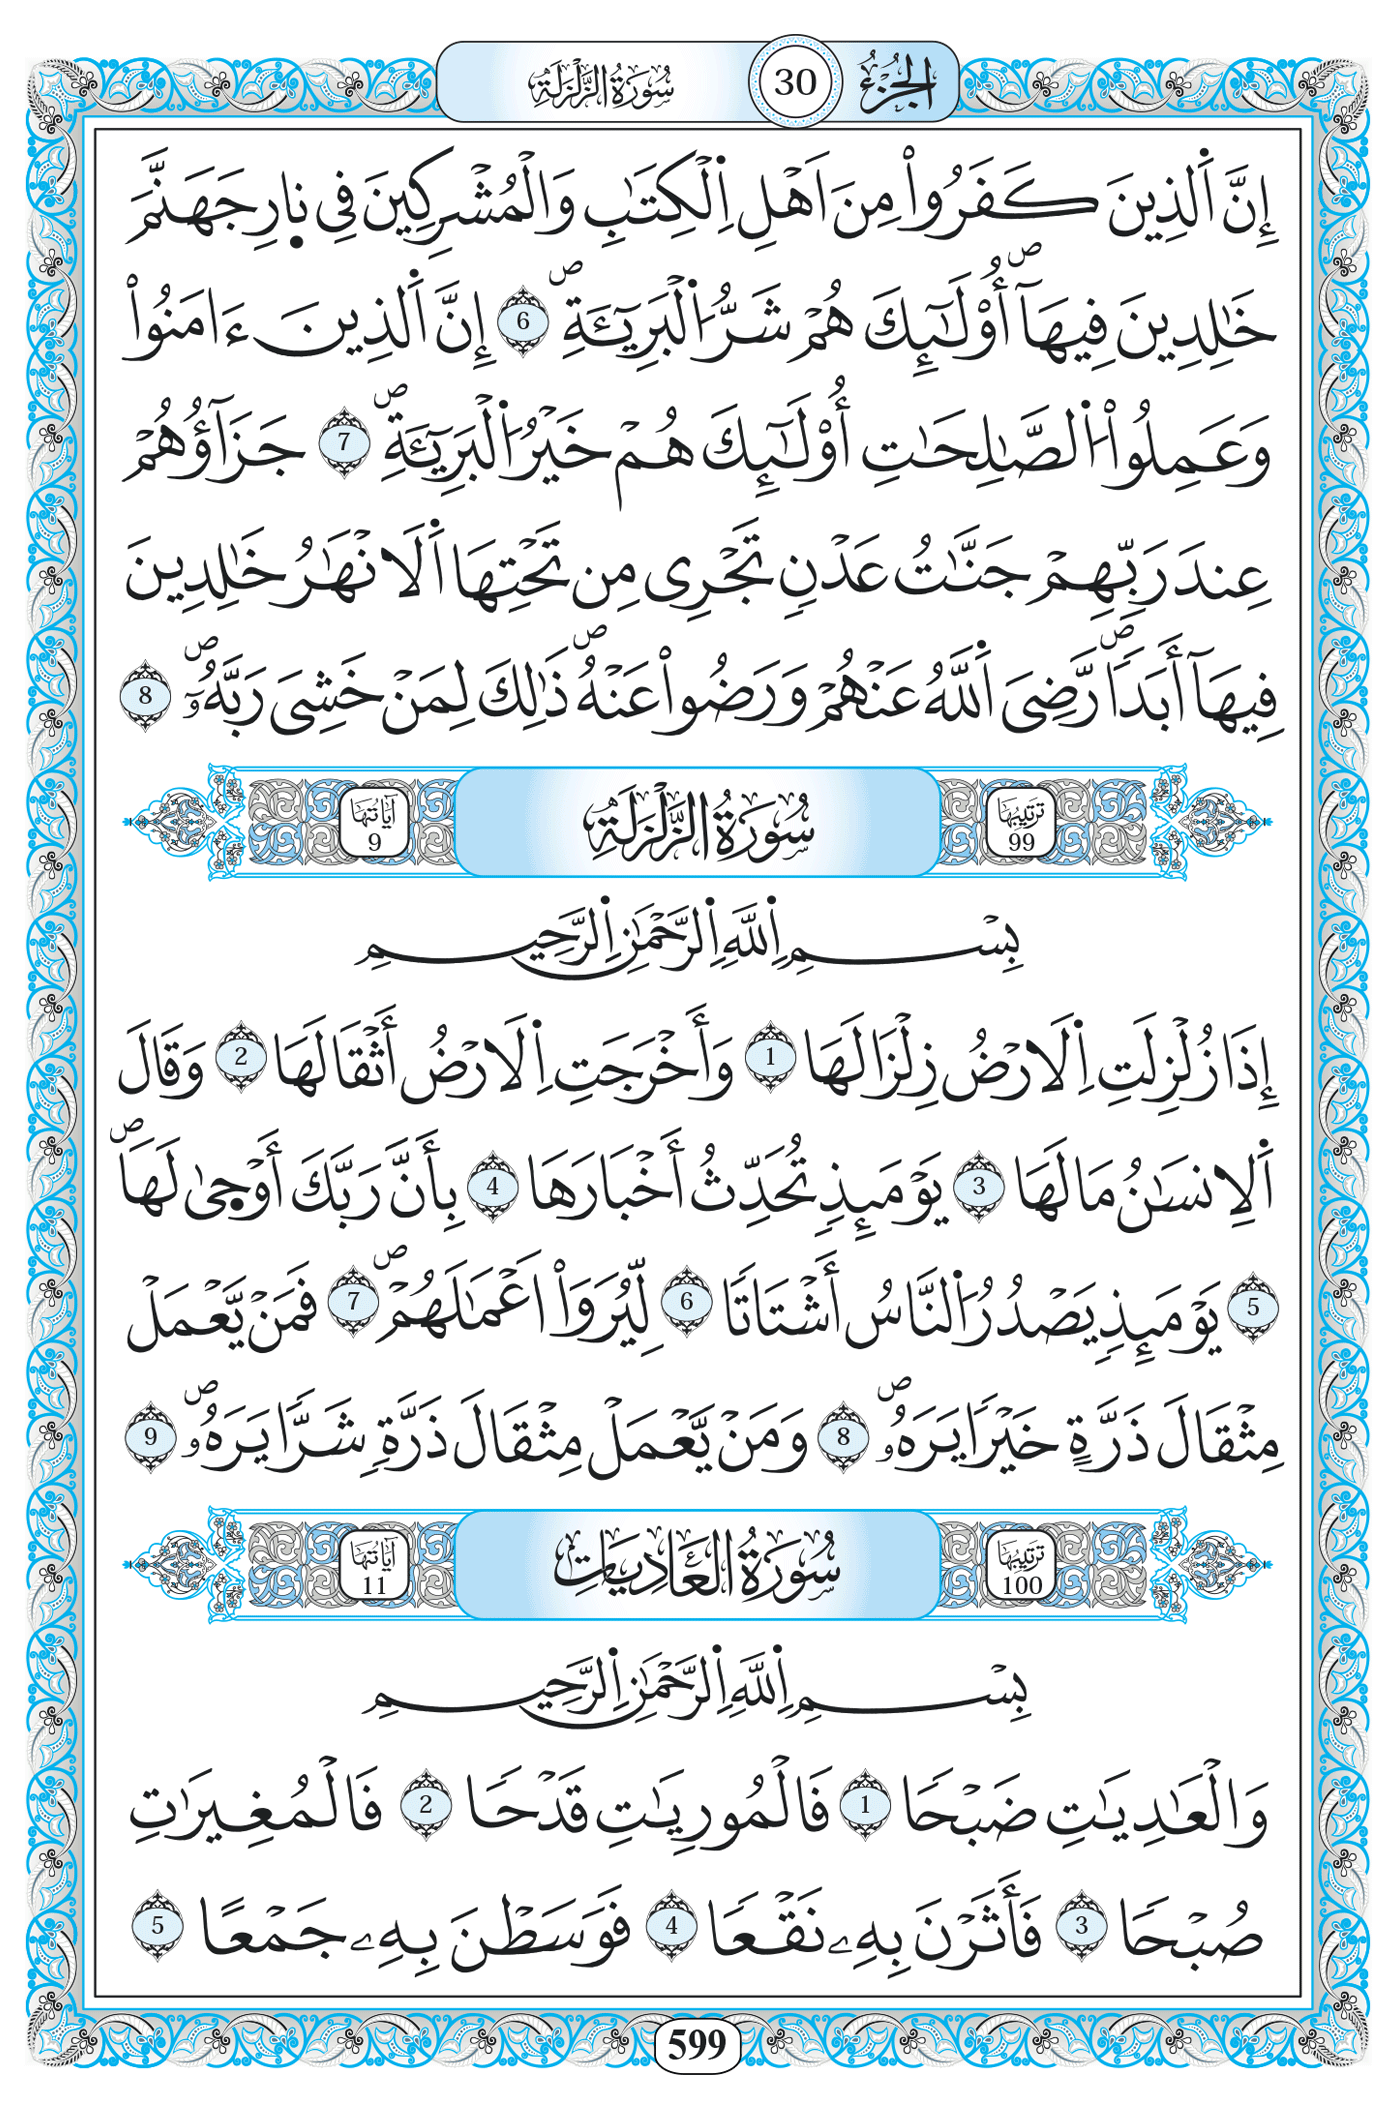 الجُزْءُ 30 سُورَةُ الزَّلْزَلَةِ
إِنَّ اَ۬لذِينَ كَفَرُواْ مِنَ اَهْلِ اِ۬لْكِتَٰبِ وَالْمُشْرِكِينَ فِي نارِ جَهَنَّمَ
خَٰلِدِينَ فِيهَآ أُوْلَٰٓئِكَ هُمْ شَرُّ اُ۬لْبَرِيٓـَٔةِۖ 6 إِنَّ اَ۬لذِينَ ءَامَنُواْ
وَعَمِلُواْ اُ۬لصَّٰلِحَٰتِ أُوْلَٰٓئِكَ هُم خَيْرُ اُ۬لْبَرِيٓـَٔةِۖ 7 جَزَآؤُهُمْ
عِندَ رَبِّهِمْ جَنَّٰتُ عَدْنٖ تَجْرِي مِن تَحْتِهَا اَ۬لَانْهَٰرُ خَٰلِدِينَ
فِيهَآ أَبَداٗۖ رَّضِيَ اَ۬للَّهُ عَنْهُمْ وَرَضُواْ عَنْهُۖ ذَٰلِكَ لِمَنْ خَشِيَ رَبَّهُۥٓۖ 8
تَرْتِيبُهَا 99 سُورَةُ الزَّلْزَلَةِ آيَاتُهَا 9
بِسْمِ اِ۬للَّهِ اِ۬لرَّحْمَٰنِ اِ۬لرَّحِيمِ
إِذَا زُلْزِلَتِ اِ۬لَارْضُ زِلْزَالَهَا 1 وَأَخْرَجَتِ اِ۬لَارْضُ أَثْقَالَهَا 2 وَقَالَ
اَ۬لِانسَٰنُ مَا لَهَا 3 يَوْمَئِذٖ تُحَدِّثُ أَخْبَارَهَا 4 بِأَنَّ رَبَّكَ أَوْحۭيٰ لَهَاۖ
5 يَوْمَئِذٖ يَصْدُرُ اُ۬لنَّاسُ أَشْتَاتاٗ 6 لِّيُرَوَاْ اَعْمَٰلَهُمْۖ 7 فَمَنْ يَّعْمَلْ
مِثْقَالَ ذَرَّةٍ خَيْراٗ يَرَهُۥۖ 8 وَمَنْ يَّعْمَلْ مِثْقَالَ ذَرَّةٖ شَرّاٗ يَرَهُۥۖ 9
تَرْتِيبُهَا 100 سُورَةُ العَادِيَاتِ آيَاتُهَا 11
بِسْمِ اِ۬للَّهِ اِ۬لرَّحْمَٰنِ اِ۬لرَّحِيمِ
وَالْعَٰدِيَٰتِ ضَبْحاٗ 1 فَالْمُورِيَٰتِ قَدْحاٗ 2 فَالْمُغِيرَٰتِ
صُبْحاٗ 3 فَأَثَرْنَ بِهِۦ نَقْعاٗ 4 فَوَسَطْنَ بِهِۦ جَمْعًا 5
599